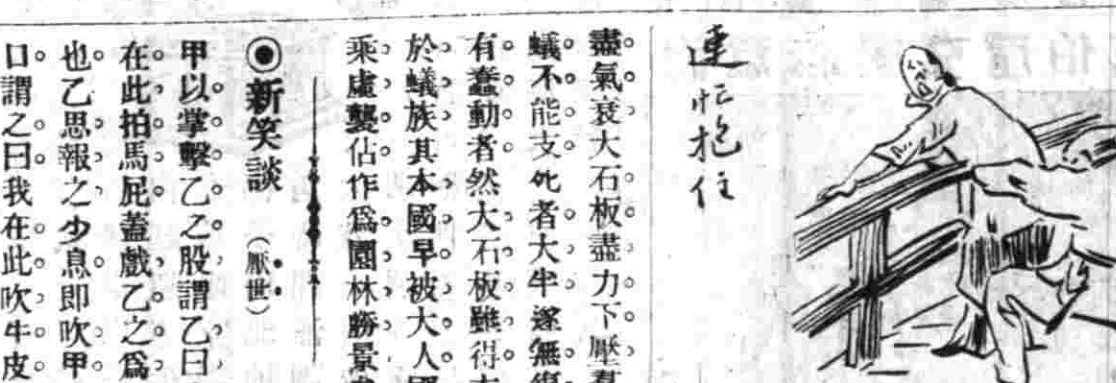 連忙抱住
盡氣衰大石板盡力下壓
蟻不能支死者大半遂無
有蠢動者然大石板雖得
於蟻族其本國早被大人國
乘虛襲佔作爲園林勝景
◉新笑談（厭世）
甲以掌擊乙之股謂乙曰
在此拍馬屁蓋戲乙之爲
也乙思報之少息即吹甲
口謂之曰我在此吹牛皮